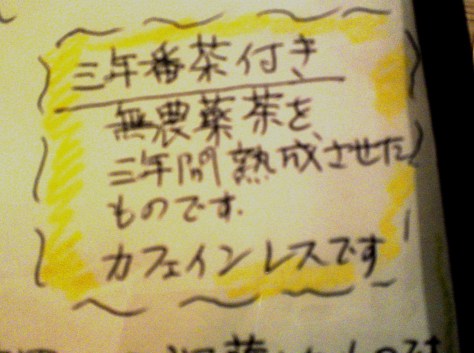 三年番茶付き
無農薬茶を、
三年間熟成させた
ものです.
カフェインレスです